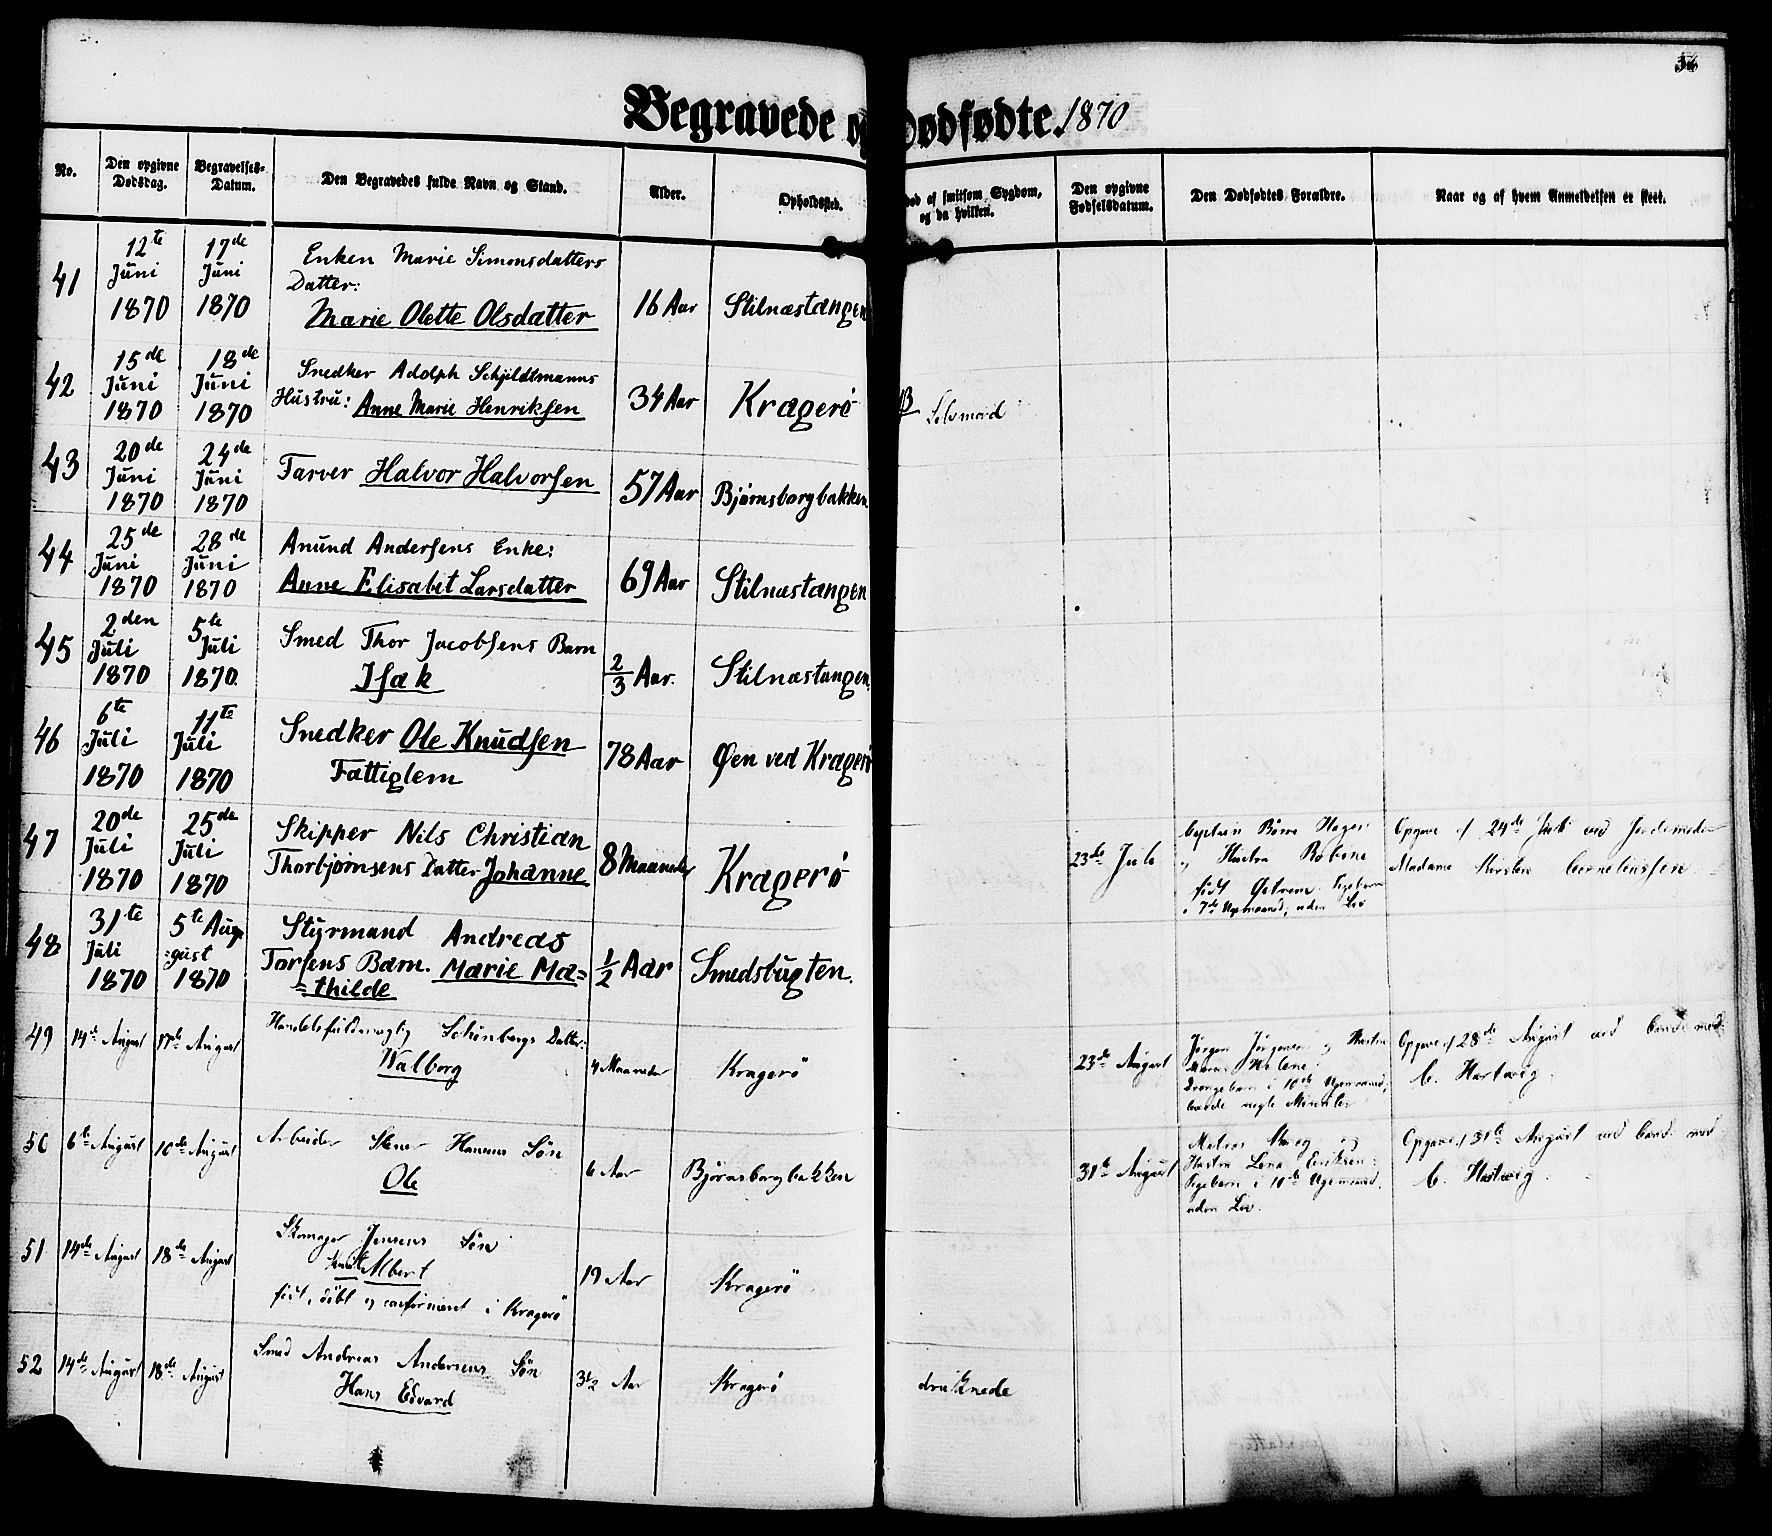 Begravede o Dødfødte. 1870
No.
Den opgivne Dødsdag.
Begravelses-Datum.
Den Begravedes fulde Navn og Stand.
Alder.
Opholdssted.
Død af smitsom Sygdom, og da hvilken.
Den opgivne Fødselsdatum.
Den Dødfødtes Forældre.
Naar og af hvem Anmeldelsen er skeet.
41 12te Juni 1870 17de Juni 1870
Enken Marie Simonsdatters
Datter:
Marie Olette Olsdatter
16 Aar Stilnæstangen
42 15de Juni 1870 18de Juni 1870
Snedker Adolph Schjeldtmanns
Hustru: Anne Marie Henriksen
34 Aar Kragerø
Selvmord
43 20de Juni 1870 24de Juni 1870
Farver Halvor Halvorsen
57 Aar Bjørnsborgbakken
44 25de Juni 1870 28de Juni 1870
Anund Andersens Enke:
Anne Elisabet Larsdatter
69 Aar Stilnæstangen
45 2den Juli 1870 5te Juli 1870.
Smed Thor Jacobsens Barn
Isak
2/3 Aar. Stilnæstangen.
46 6te Juli 1870 11te Juli 1870
Snedker Ole Knudsen
Fattiglem
78 Aar Øen ved Kragerø
47 20de Juli 1870 25de Juli 1870
Skipper Nils Christian
Thorbjørnsens Datter Johanne
8 Maaneder Kragerø
23de Juli
Hustru
født Pigebarn
i 7de Ugemaaned, uden Liv
Opgave 24de Juli ved Jordemoder
Madame Kirstine Corneliussen
48 31te Juli 1870 5te Aug=
=gust 1870
Styrmand Andreas
Torsens Barn. Marie Ma=
=thilde
1/2 Aar Smedsbugten.
49 14de August 17de August
Handelsfuldmægtig Schønbergs Datter:
Walborg
4 Maaneder Kragerö
23de August
Jørgen Jørgensen og Hustru
Maren Helene:
Drengebarn i 10de Ugemaaned,
Opgave af 28de August ved Cand. med.
C. Hartwig.
50 6te August 10de August
Arbeider Stener Hansens Sön
Ole
6 Aar Björnsborgbakken
31te August
Matros og
Hustru Lena Eriksen:
Pigebarn i 10de Ugemaaned,
uden Liv.
Opgave af 31te August ved Cand. med.
C. Hartwig.
51 14de August 18de August
Skomager Jensens Sön
Albert
født, döbt og confirmeret i Kragerö
19 Aar Kragerö
52 14de August 18de August
Smed Andreas Andersens Sön
Hans Edvard
3 1/2 Aar Kragerö
druknede